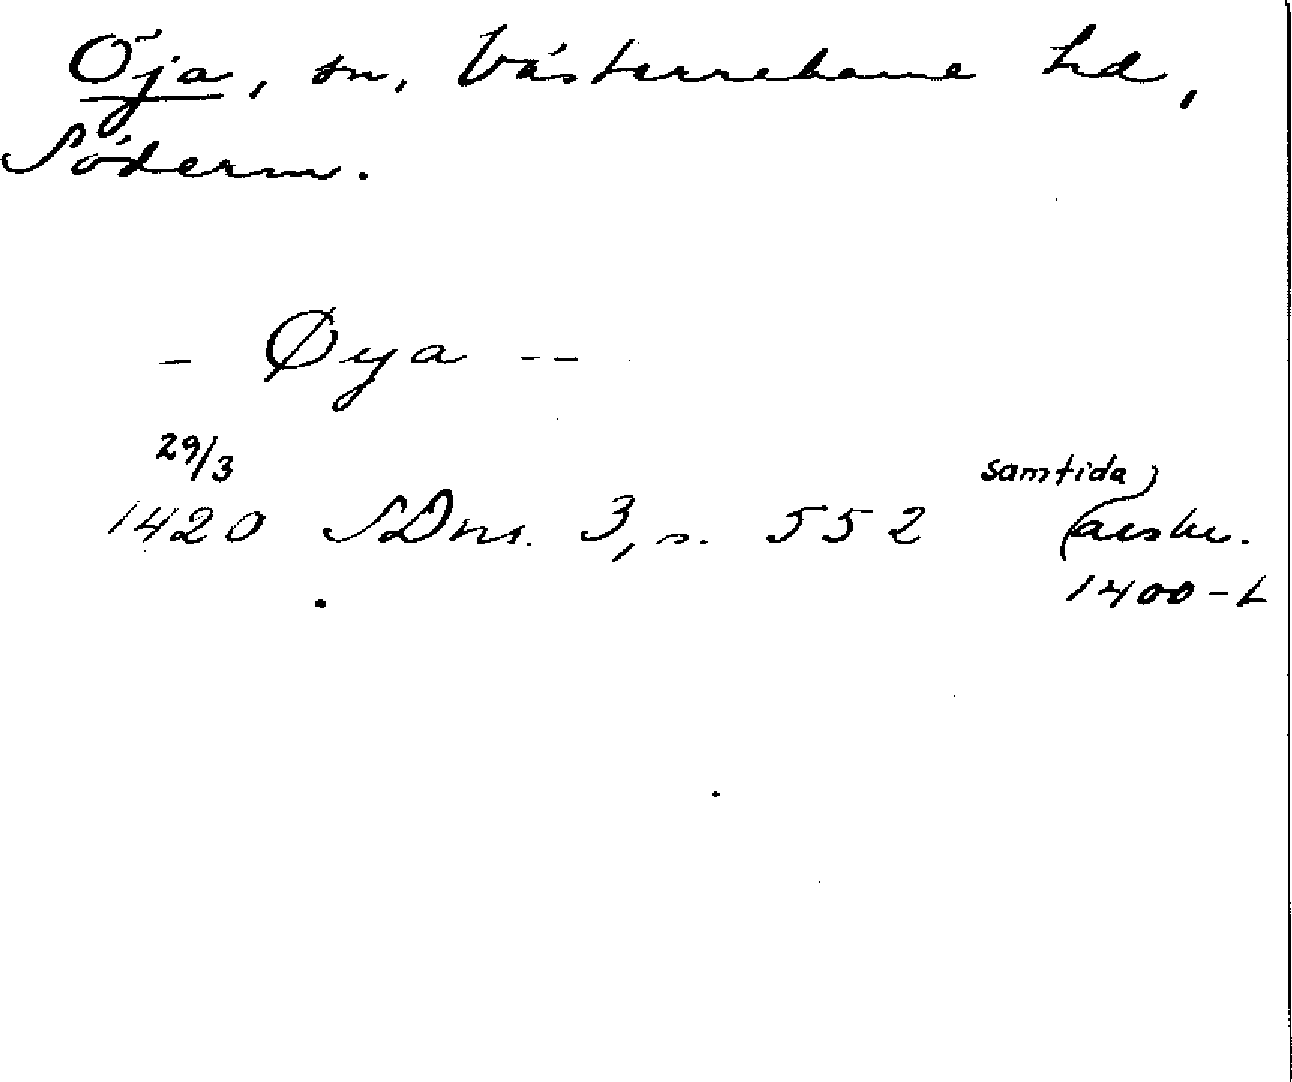 Öja, sn, Västerrekarne hd,
Söderm.
- Øya --
29/3
samtida
1420 SDns. 3, s. 552 (avskr.
1400-t